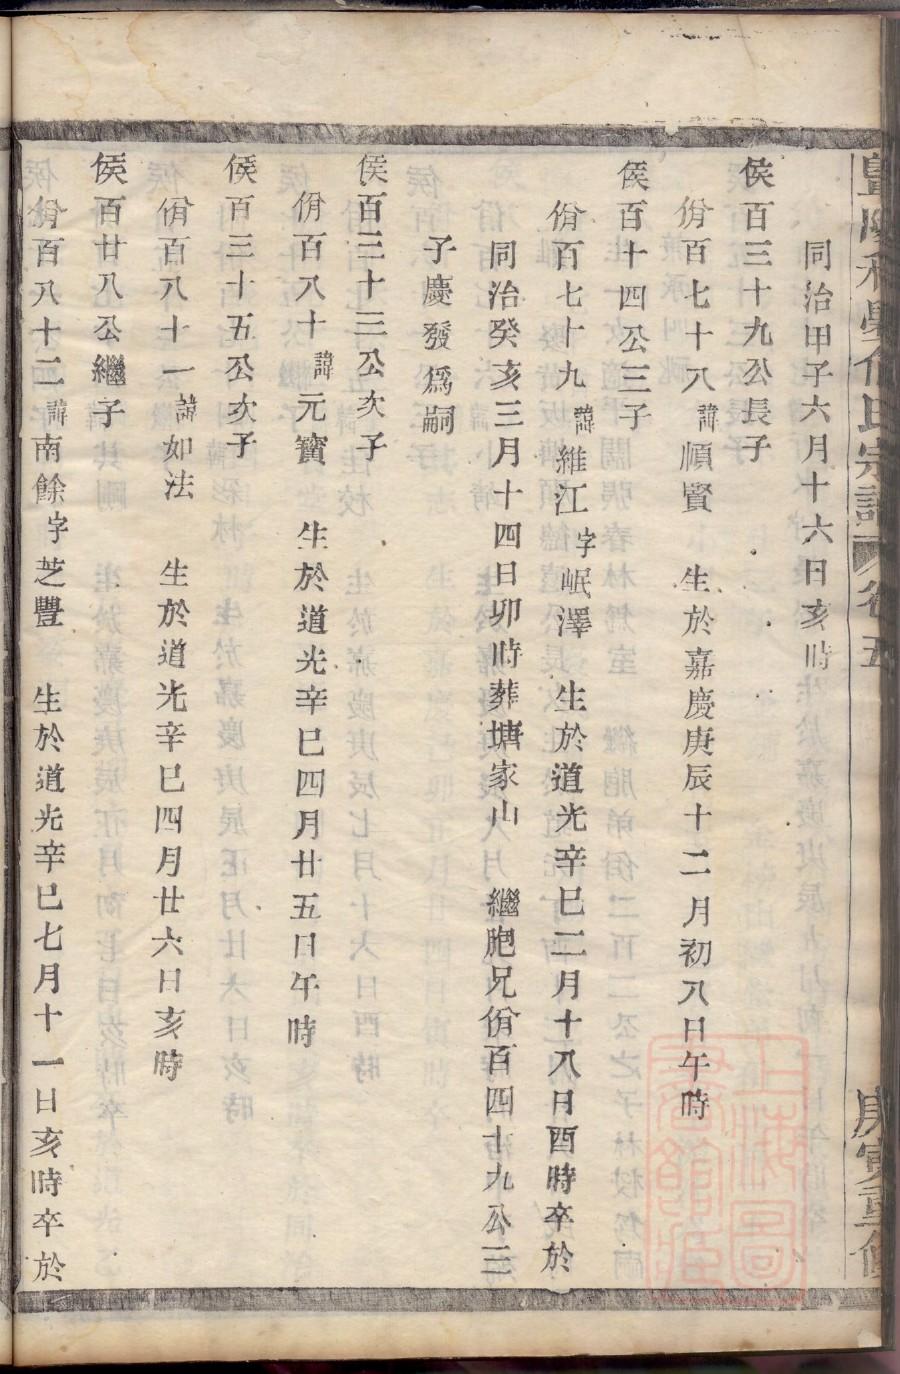 卷五
庚寅重修
同治甲子六月十六日亥時
侯百三十九公長子
佾百七十八諱順賢 生於嘉慶庚辰十二月初八日午時
侯百十四公三子
佾百七十九諱維江字岷澤 生於道光辛巳二月十八日酉時卒於
同治癸亥三月十四日卯時葬塘家山 繼胞兄佾百四十九公三
子慶發為嗣
侯百三十三公次子
佾百八十諱元寳 生於道光辛巳四月廿五日午時
侯百三十五公次子
佾百八十一諱如法 生於道光辛巳四月廿六日亥時
侯百廿八公繼子
佾百八十二諱南餘字芝豐 生於道光辛巳七月十一日亥時卒於